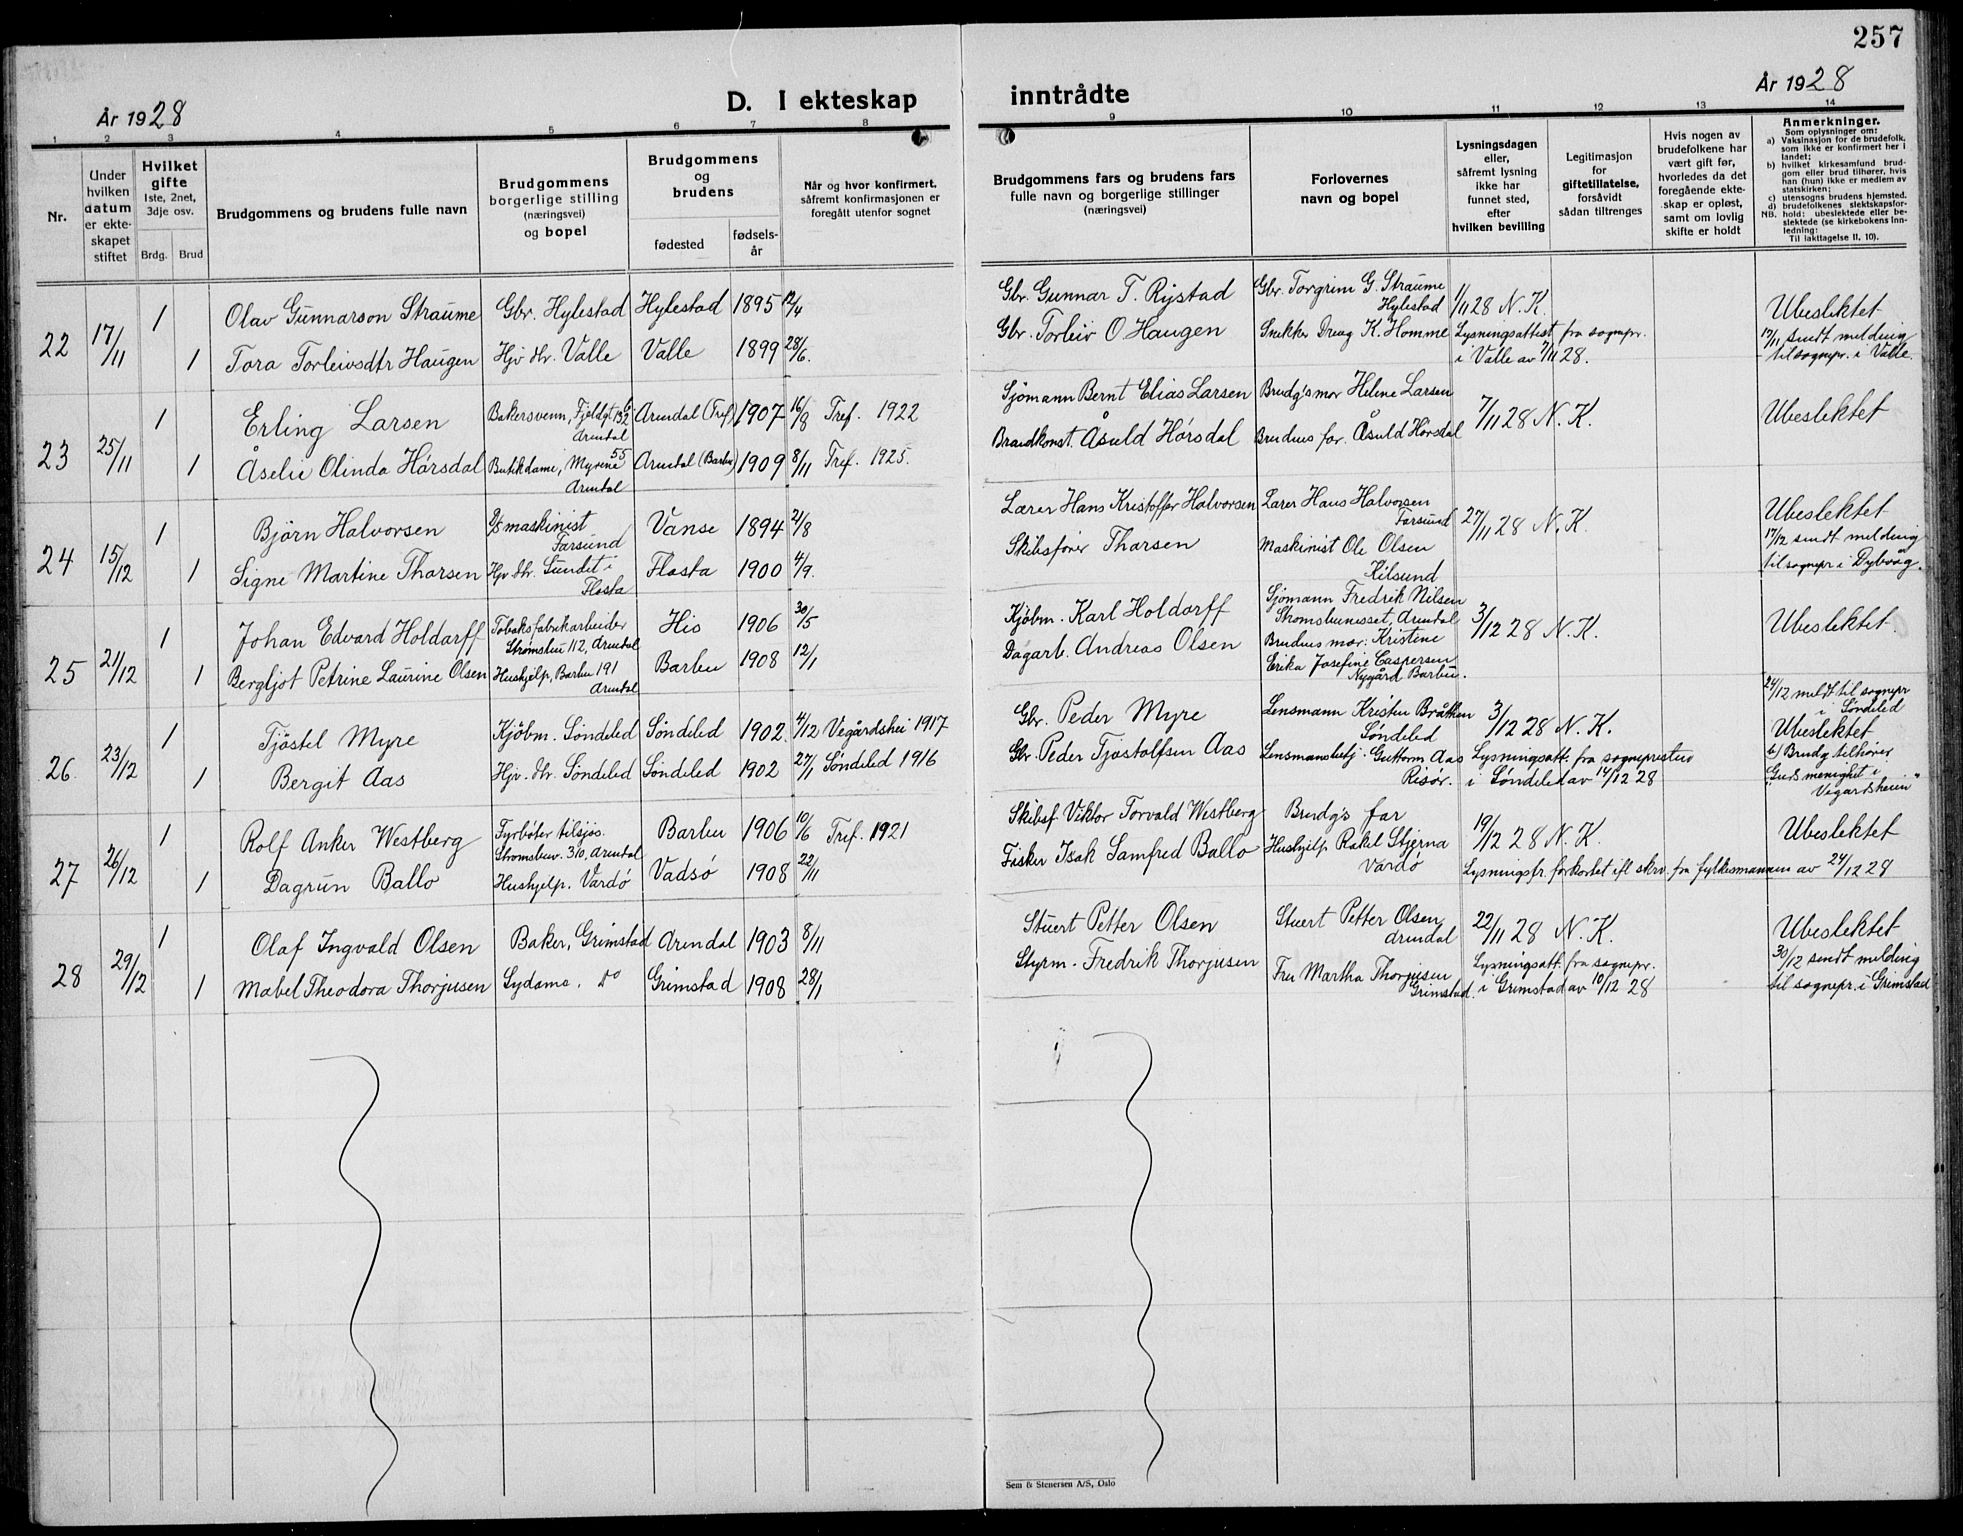 257
År 1928
D. I ekteskap
inntrådte
År 1928
1 2 3 4 5 6 7 8 9 10 11 12 13 14
Nr.
Under
hvilken
datum
er ekte-
skapet
stiftet
Hvilket
gifte
1ste, 2net,
3dje osv.
Brdg. Brud
Brudgommens og brudens fulle navn
Brudgommens
borgerlige stilling
(næringsvei)
og bopel
Brudgommens
og
brudens
fødested
fødsels-
år
Når og hvor konfirmert,
såfremt konfirmasjonen er
foregått utenfor sognet
Brudgommens fars og brudens fars
fulle navn og borgerlige stillinger
(næringsvei)
Forlovernes
navn og bopel
Lysningsdagen
eller,
såfremt lysning
ikke har
funnet sted,
efter
hvilken bevilling
Legitimasjon
for
giftetillatelse,
forsåvidt
sådan tiltrenges
Hvis nogen av
brudefolkene har
vært gift før,
hvorledes da det
foregående ekte-
skap er opløst,
samt om lovlig
skifte er holdt
Anmerkninger.
Som oplysninger om:
a) Vaksinasjon for de brudefolk,
som ikke er konfirmert her i
landet;
b) hvilket kirkesamfund brud-
gom eller brud tilhører, hvis
han (hun) ikke er medlem av
statskirken;
c) utensogns brudens hjemsted.
d) brudefolkenes slektskapsfor-
NB. hold: ubeslektede eller be-
slektede (se kirkebokens Inn-
ledning:
Til iakttagelse II, 10).
22 17/11 1 Olav Gunnarson Straume Gbr. Hylestad Hylestad 1895 12/4
Gbr. Gunnar T. Rystad Gbr. Torgrim G. Straume
Hylestad 1/11 28 N.K. Ubeslektet
1 Tora Torleivsdtr Haugen Hjv. dtr. Valle Valle 1899 28/6.
Gbr. Torleiv O Haugen Snekker Dreng K. Homme Lysningsattest fra sognepr.
i Valle av 7/11 28.
17/11 sendt melding
til sognepr. i Valle.
23 25/11 1 Erling Larsen Bakersvenn, Fjeldgt. 132
Arendal Arendal (Tref.) 1907 16/8 Tref. 1922
Sjömann Bernt Elias Larsen Brudg's mor Helene Larsen 7/11 28 N.K. Ubeslektet
1 Åselie Olinda Hórsdal Butikdame, Myrene 55
Arendal Arendal (Barbu) 1909 8/11 Tref. 1925.
Brandkonst. Åsuld Hórsdal Brudens far Åsuld Hórsdal
24 15/12 1 Björn Halvorsen D/S maskinist
Farsund Vanse 1894 21/8
Lærer Hans Kristoffer Halvorsen Lærer Hans Halvorsen
Farsund 27/11 28 N.K. Ubeslektet
1 Signe Martine Thorsen Hjv. dtr. Sundet i
Flosta Flosta 1900 4/9.
Skibsfører Thorsen Maskinist Ole Olsen
Kilsund
17/12 sendt melding
til sognepr. i Dybvåg.
25 21/12 1 Johan Edvard Holdorff Tobaksfabrikarbeider
Strömsbu 112, Arendal His 1906 30/5
Kjöbm. Karl Holdorff Sjömann Fredrik Nilsen
Stromsbunesset, Arendal 3/12 28 N.K. Ubeslektet.
1 Bergljot Petrine Laurine Olsen Hushjelp, Barbu 191
Arendal Barbu 1908 12/1
Dagarb. Andreas Olsen Brudens mor: Kristine
Erika Josefine Caspersen
Nygård Barbu.
26 23/12 1 Tjöstel Myre Kjöbm. Söndeled Söndeled 1902. 4/12 Vegårdshei 1917
Gbr. Peder Myre Lensmann Kristen Bråtten
Söndeled 3/12 28 N.K.
24/12 meldt til sognepr
i Söndeled
Ubeslektet
1 Bergit Aas Hjv. dtr. Söndeled Söndeled 1902 27/1 Söndeled 1916
Gbr. Peder Tjöstolfsen Aas Lensmansbetj. Guttorm Aas
Risör. Lysningsatt. fra sognepresten
i Söndeled av 14/12 28
b/ Brudg. tilhører
Guds menighet i
Vegårdsheien"
27 26/12 1 Rolf Anker Westberg Fyrböter tilsjøs.
Strömsbuv. 310, Arendal Barbu 1906 10/6 Tref. 1921
Skibsf. Viktor Torvald Westberg Brudg's far 19/12 28 N.K. Ubeslektet
1 Dagrun Ballo Hushjelp. Vardö Vadsö 1908 22/11
Fisker Isak Samfred Ballo Hushjelp Rakel Stjerna
Vardö Lysningsfr. forkortet ifl skrv. fra fylkesmannen av 24/12 28
28 29/12 1 Olaf Ingvald Olsen Baker, Grimstad Arendal 1903 8/11
Stuert Petter Olsen Stuert Petter Olsen
Arendal 22/11 28 N.K. Ubeslektet
1 Mabel Theodora Thorjusen Sydame. Do Grimstad 1908 28/1
Styrm. Fredrik Thorjusen Fru Martha Thorjusen
Grimstad. Lysningsatt. fra sognepr.
i Grimstad av 10/12 28
30/12 sendt melding
til sognepr. i Grimstad
Sem & Stenersen A/S, Oslo